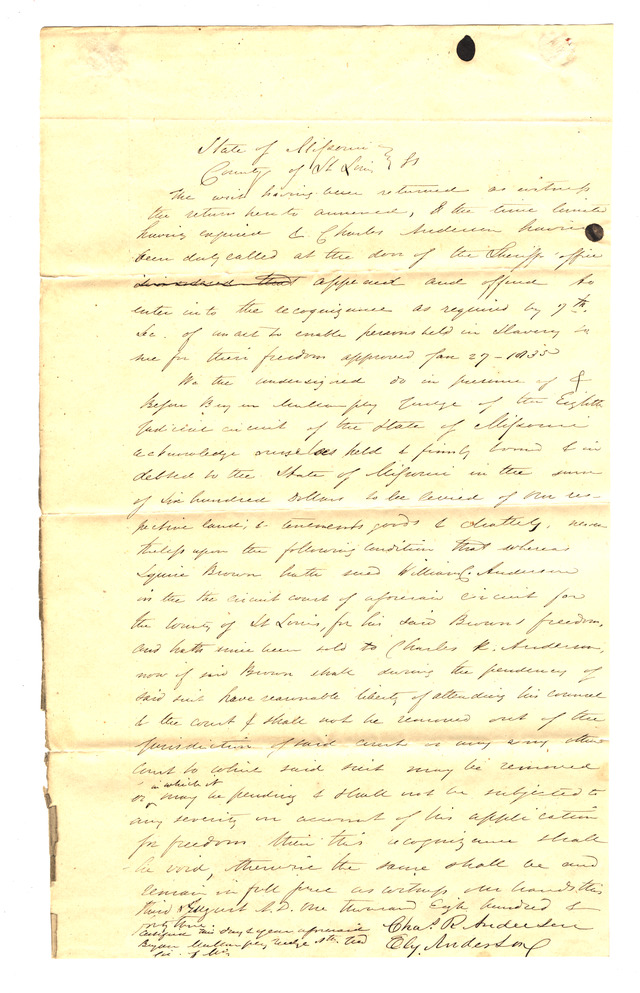 State of Missouri
County of St Louis } ss
The writ having been returned as witness
the return hereto annexed, & the time
having expired & Charles Anderson having
been duly called at the door of the Sheriffs office
appeared and offered to
enter into the recognizance as required by 9th
Sec. of an act to enable persons held in Slavery to
sue for their freedom approved Jan 27 - 1835
We the undersigned do in presence of &
before Bryan Mullanphy Judge of the Eighth
Judicial circuit of the State of Missouri
acknowledge ourselves held & firmly bound & in
debted to the State of Missouri in the sum
of Six hundred Dollars to be levied of our res-
pective lands & tenements goods & chattels, never
theless upon the following condition that whereas
Squire Brown hath sued William C. Anderson
in the the circuit court of aforesaid circuit for
the County of St Louis, for his said Brown's freedom,
and hath since been sold to Charles R. Anderson,
now if said Brown shall during the pendency of
said suit have reasonable liberty of attending his counsel
& the court & shall not be removed out of the
jurisdiction of said court or any other
court to which said suit may be removed
or in which it may be pending & shall not be subjected to
any severity on account of his application
for freedom then this recognizance shall
be void, otherwise the same shall be and
remain in full force as witness our hands this
third August A.D. One thousand Eight hundred &
forty one.
Chas. R Anderson
this day & year aforesaid
Bryan Mullanphy Judge 8th Jud
Cir. of Mo
Ely. Anderson